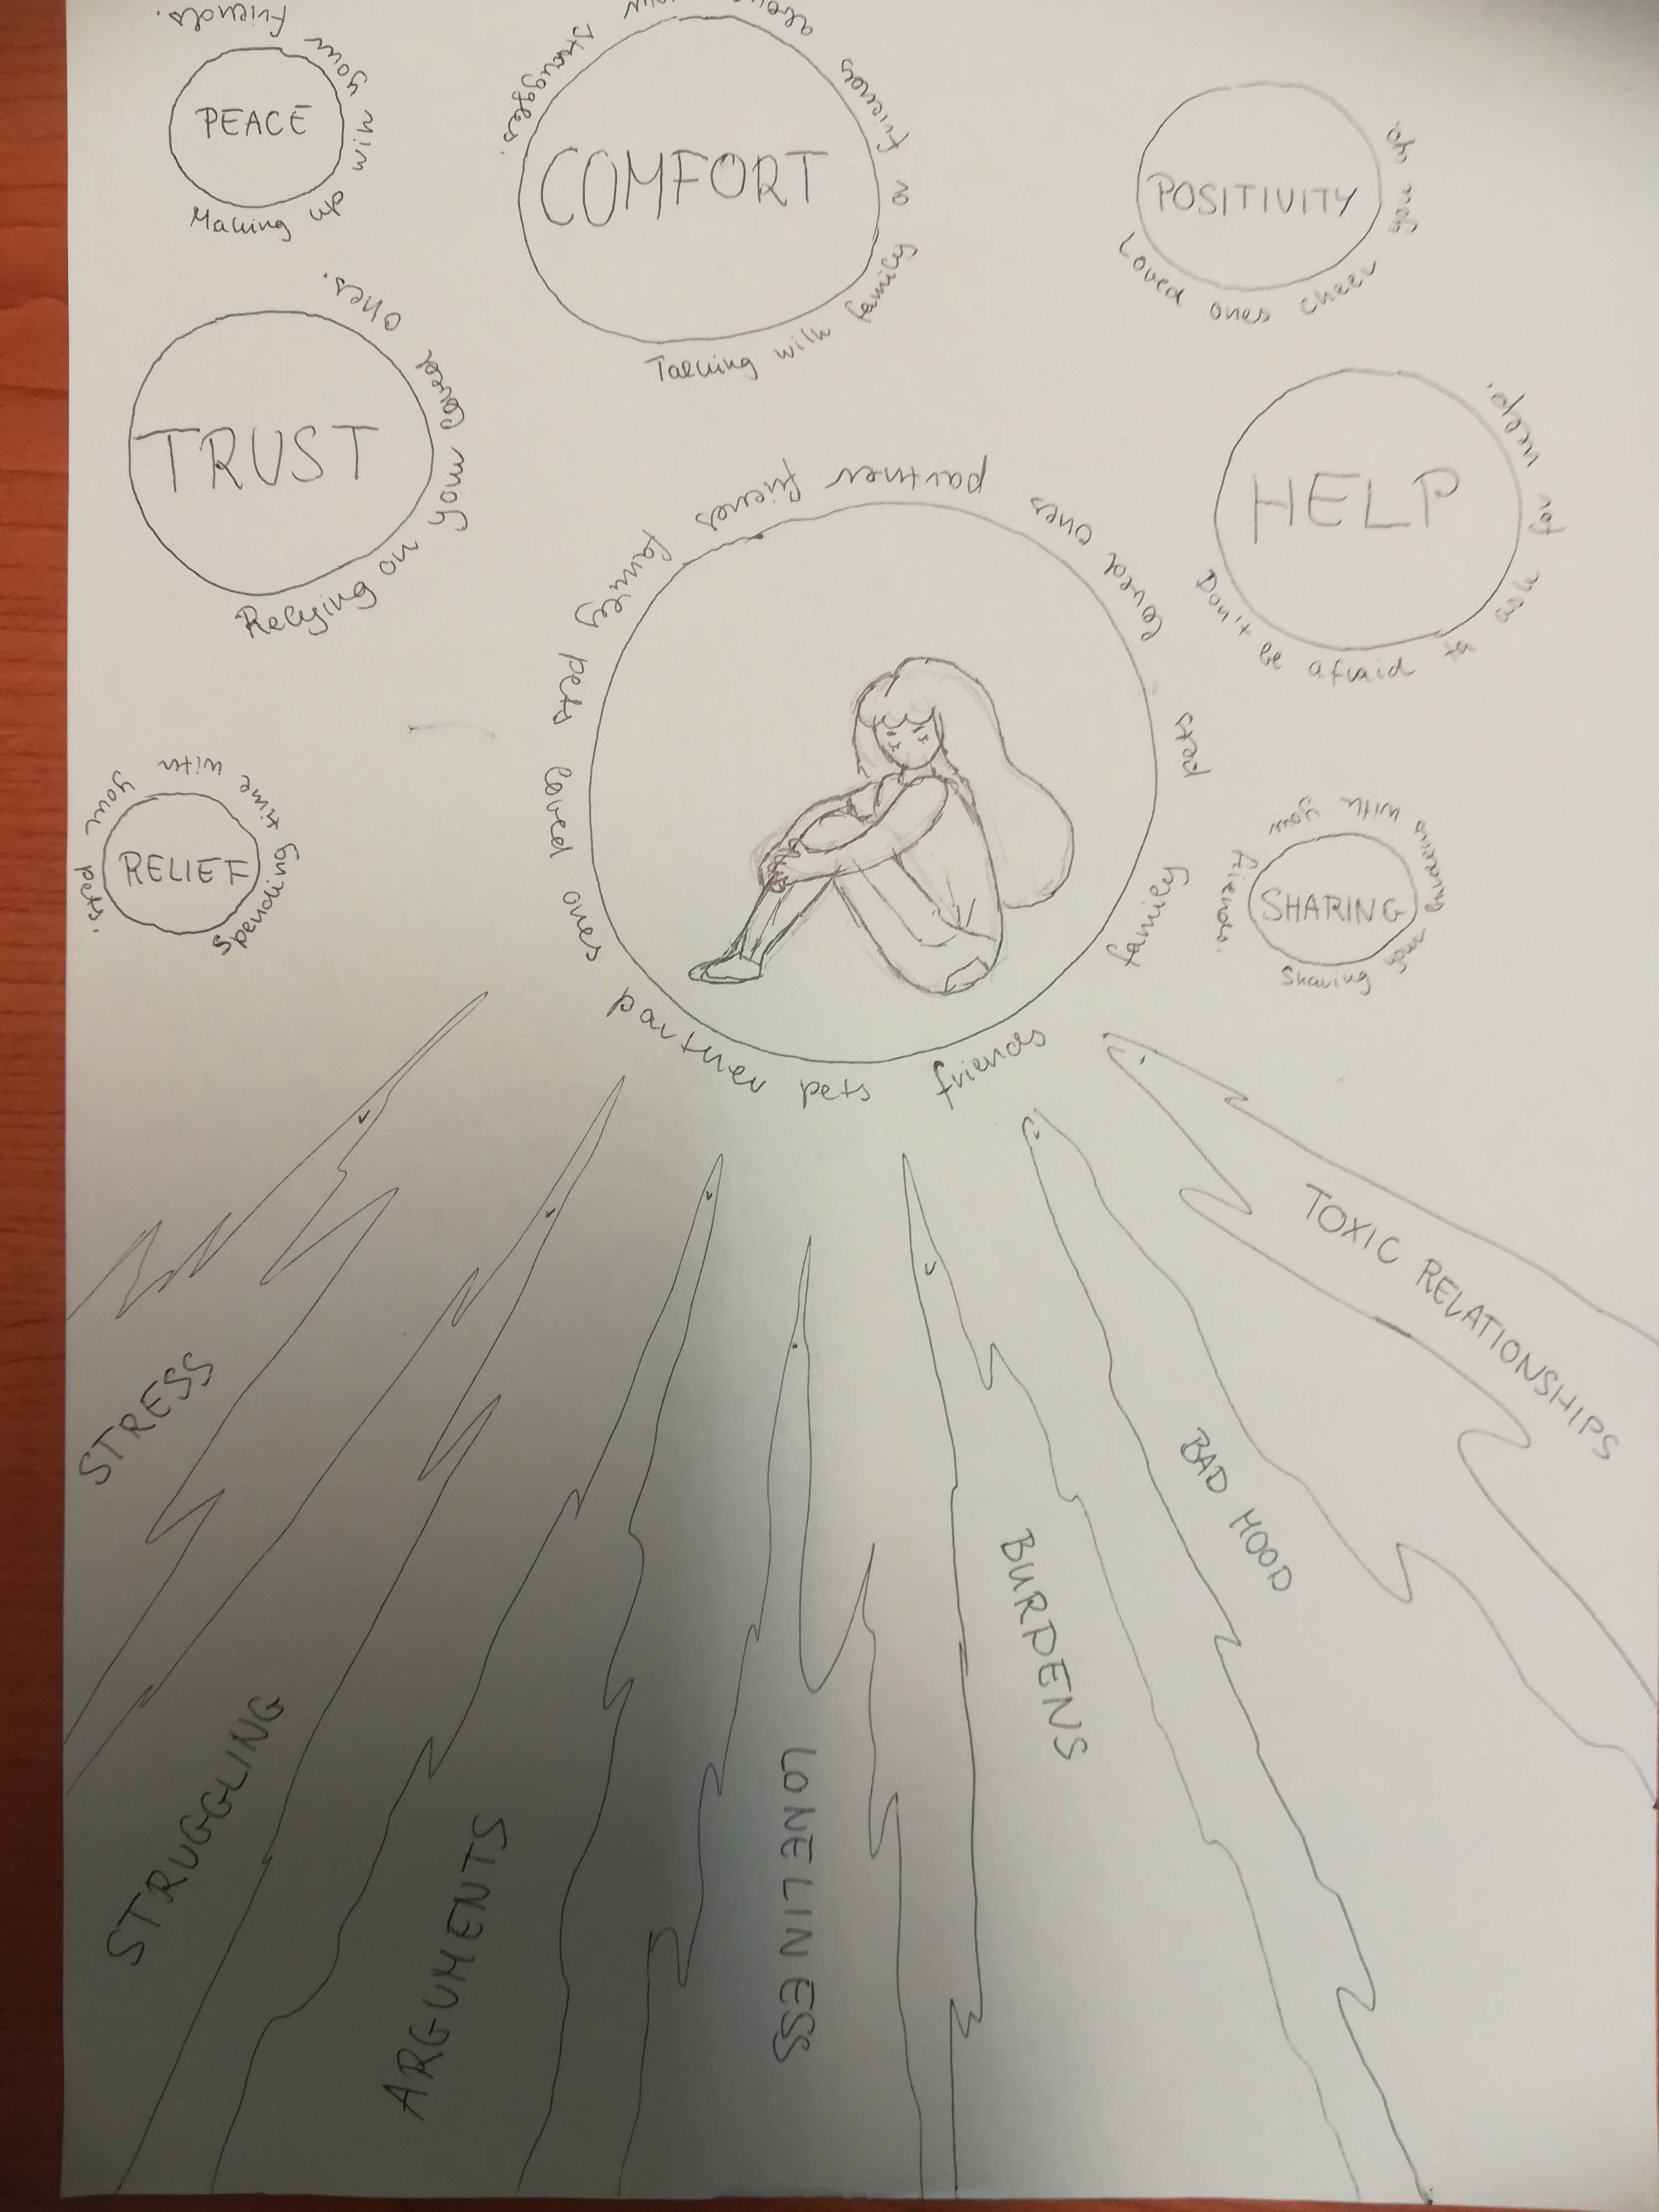 PEACE
Making up with your friends.
COMFORT
Talking with family or friends about your struggles.
POSITIVITY
Loved ones cheer you up.
TRUST
Relying on your loved ones.
HELP
Don't be afraid to ask for help.
RELIEF
Spending time with your pets.
SHARING
Sharing your burdens with your friends.
partner pets friends family pets loved ones partner friends family pets loved ones
STRESS
STRUGGLING
ARGUMENTS
LONELINESS
BURDENS
BAD MOOD
TOXIC RELATIONSHIPS